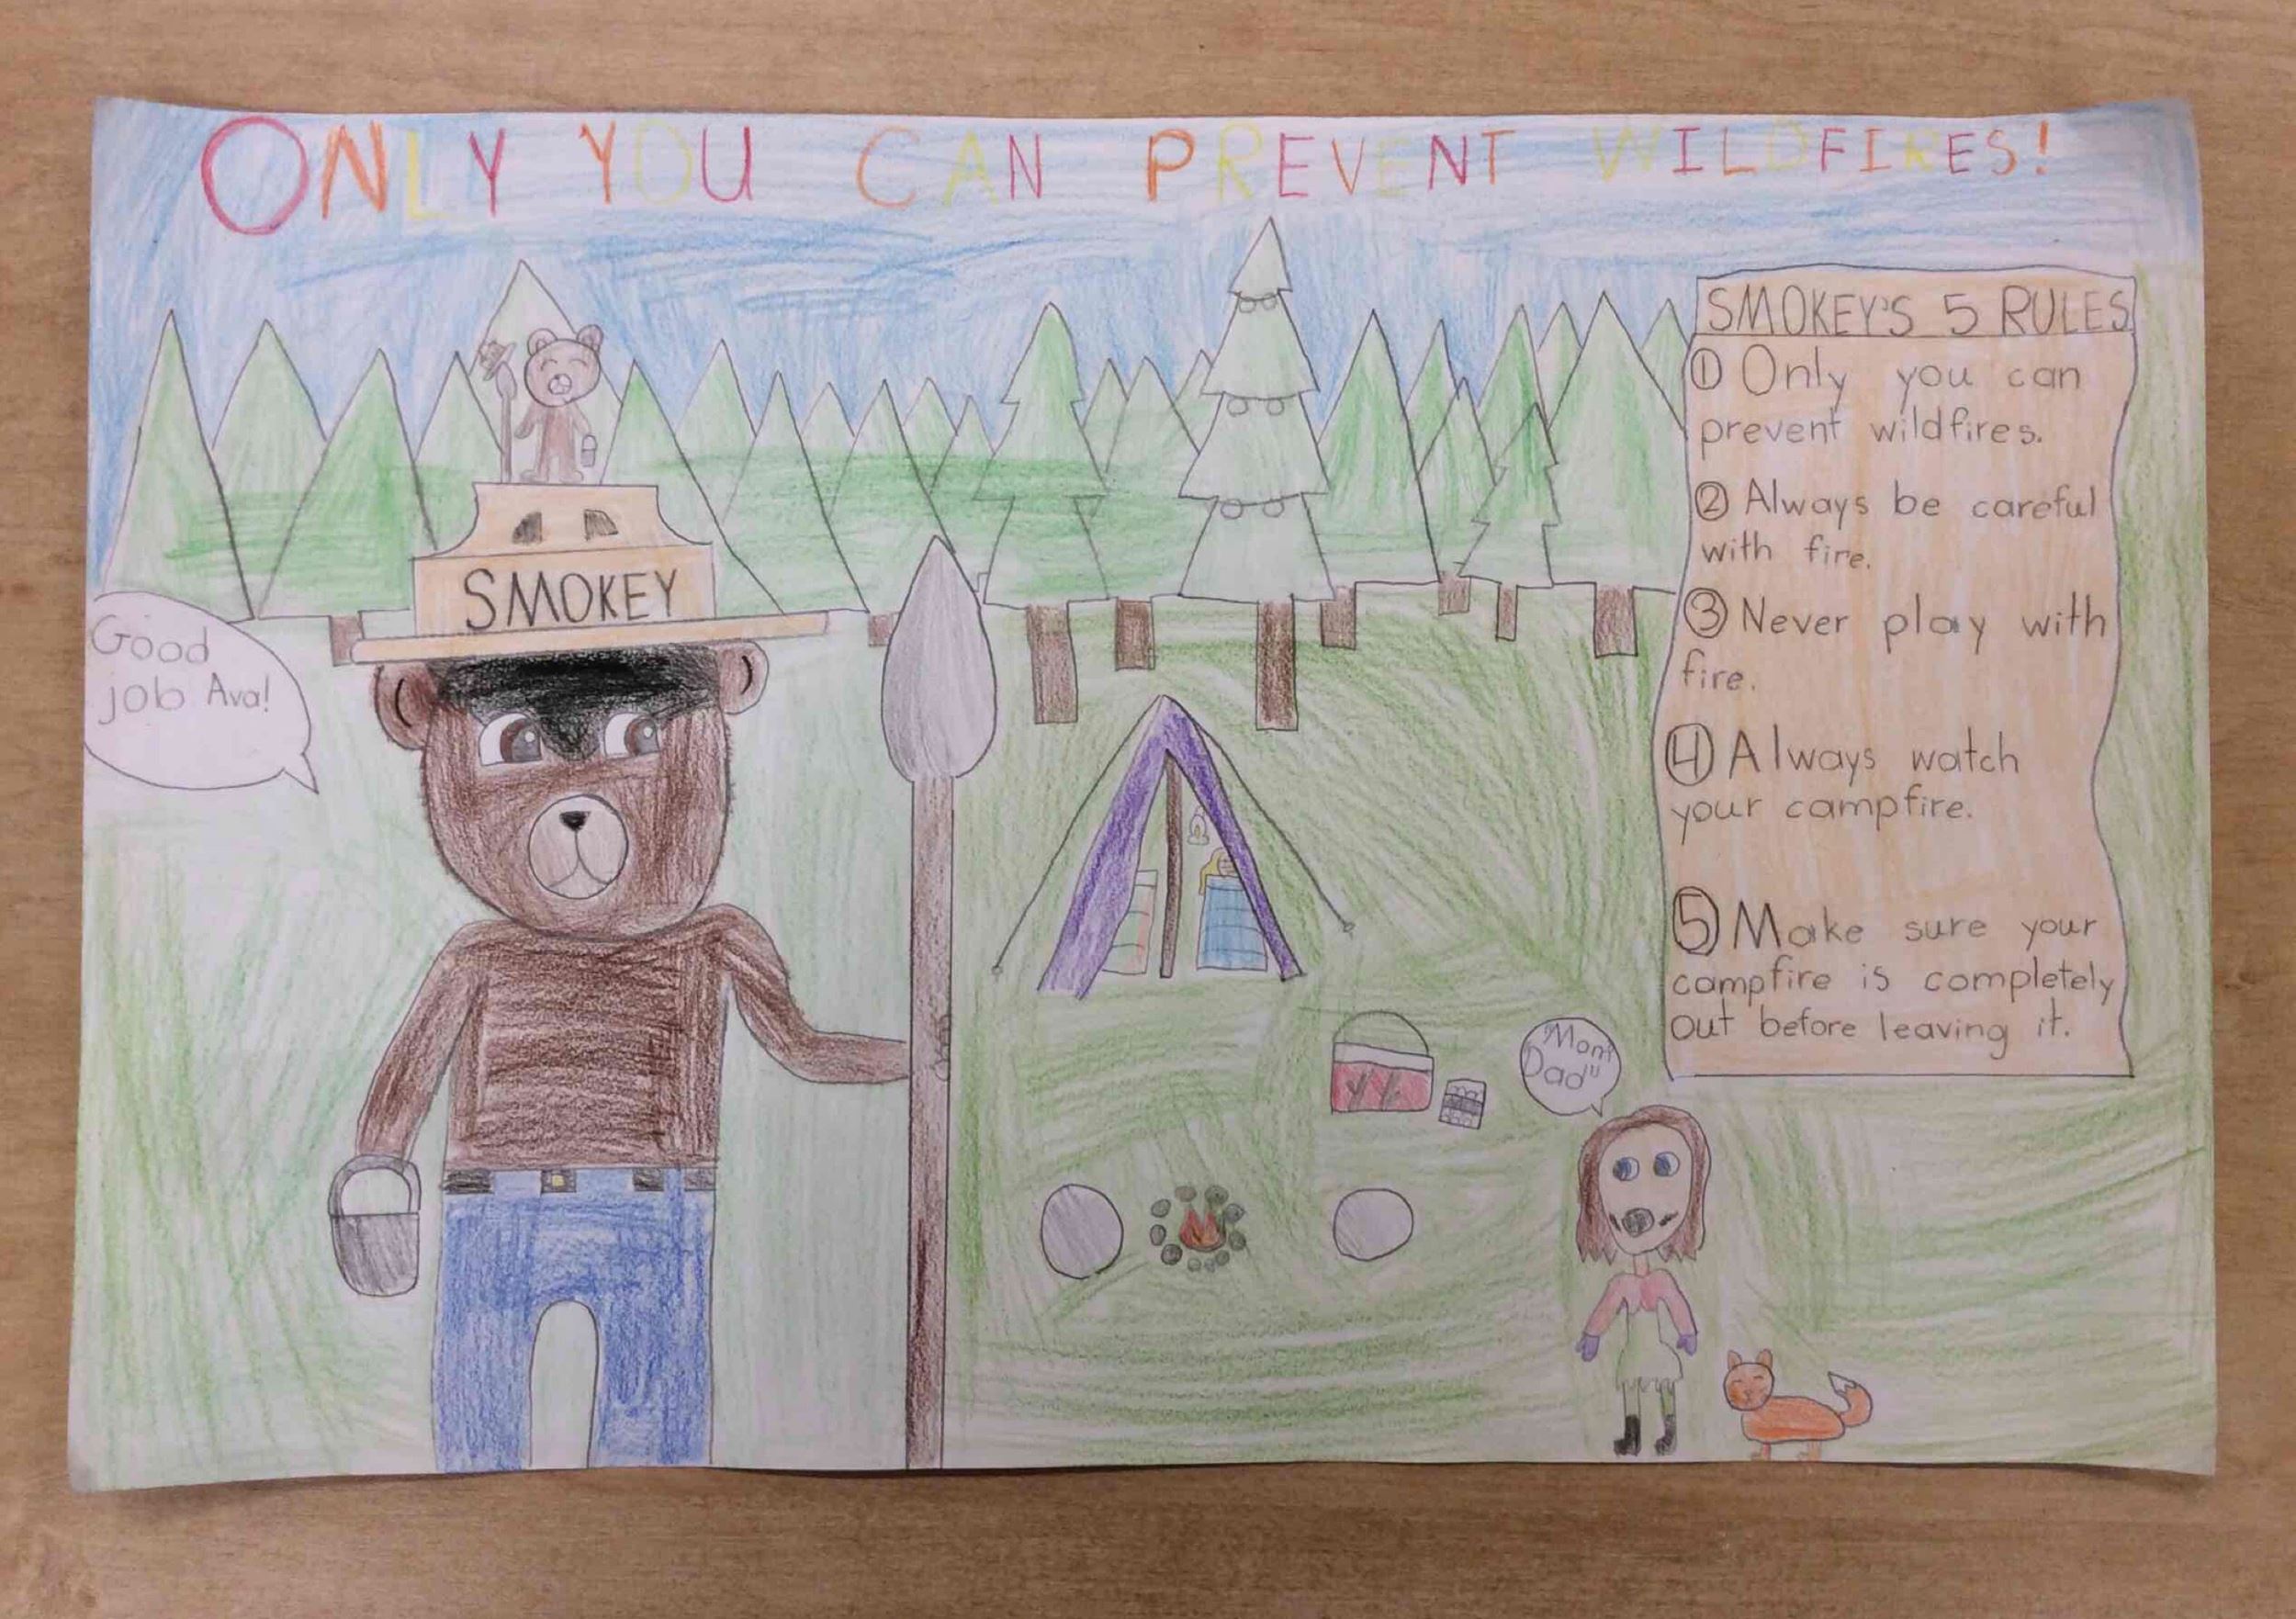 ONLY YOU CAN PREVENT WILDFIRES!
SMOKEY'S 5 RULES
① Only you can
prevent wildfires.
② Always be careful
with fire.
③ Never play with
fire.
④ Always watch
your campfire.
⑤ Make sure your
campfire is completely
out before leaving it.
SMOKEY
Good
job Ava!
"Mom
Dad"